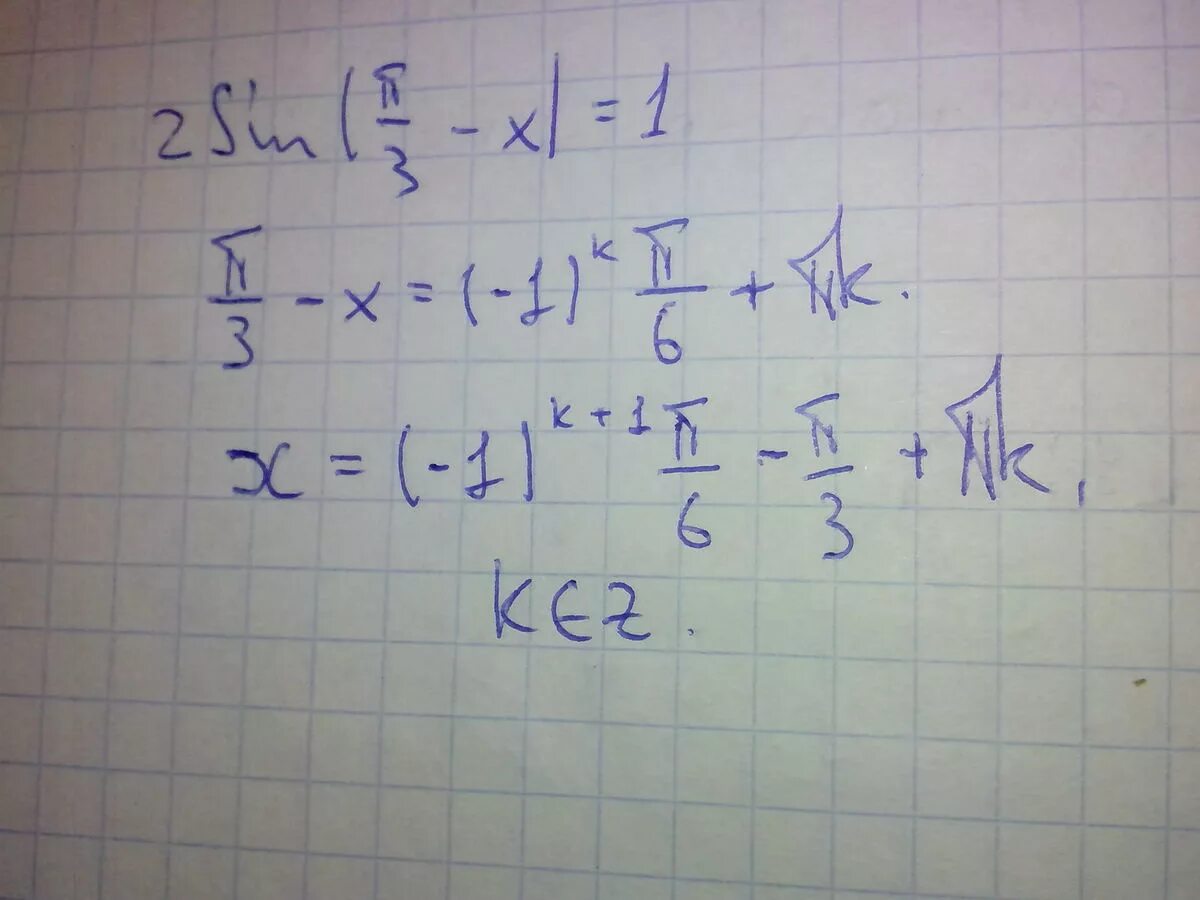 2 Sin (π/3 - x) = 1
π/3 - x = (-1)^k π/6 + πk.
x = (-1)^(k+1) π/6 - π/3 + πk,
k ∈ Z.